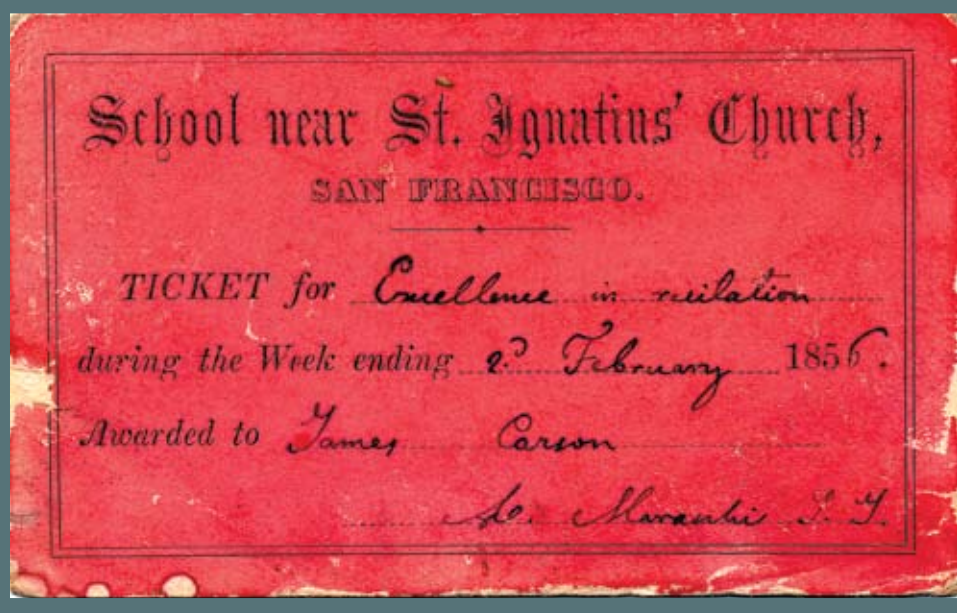 School near St. Ignatius' Church,
SAN FRANCISCO.
TICKET for Excellence in recitation
during the Week ending 2d February 1856.
Awarded to James Carson
A. Maraschi S. J.